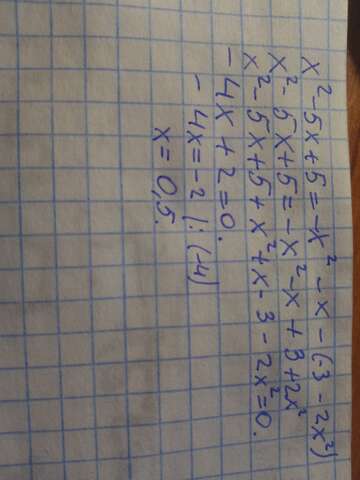 x²-5x+5=-x²-x-(-3-2x²)
x²-5x+5=-x²-x+3+2x²
x²-5x+5+x²+x-3-2x²=0.
-4x+2=0.
-4x=-2 |:(-4)
x=0,5.